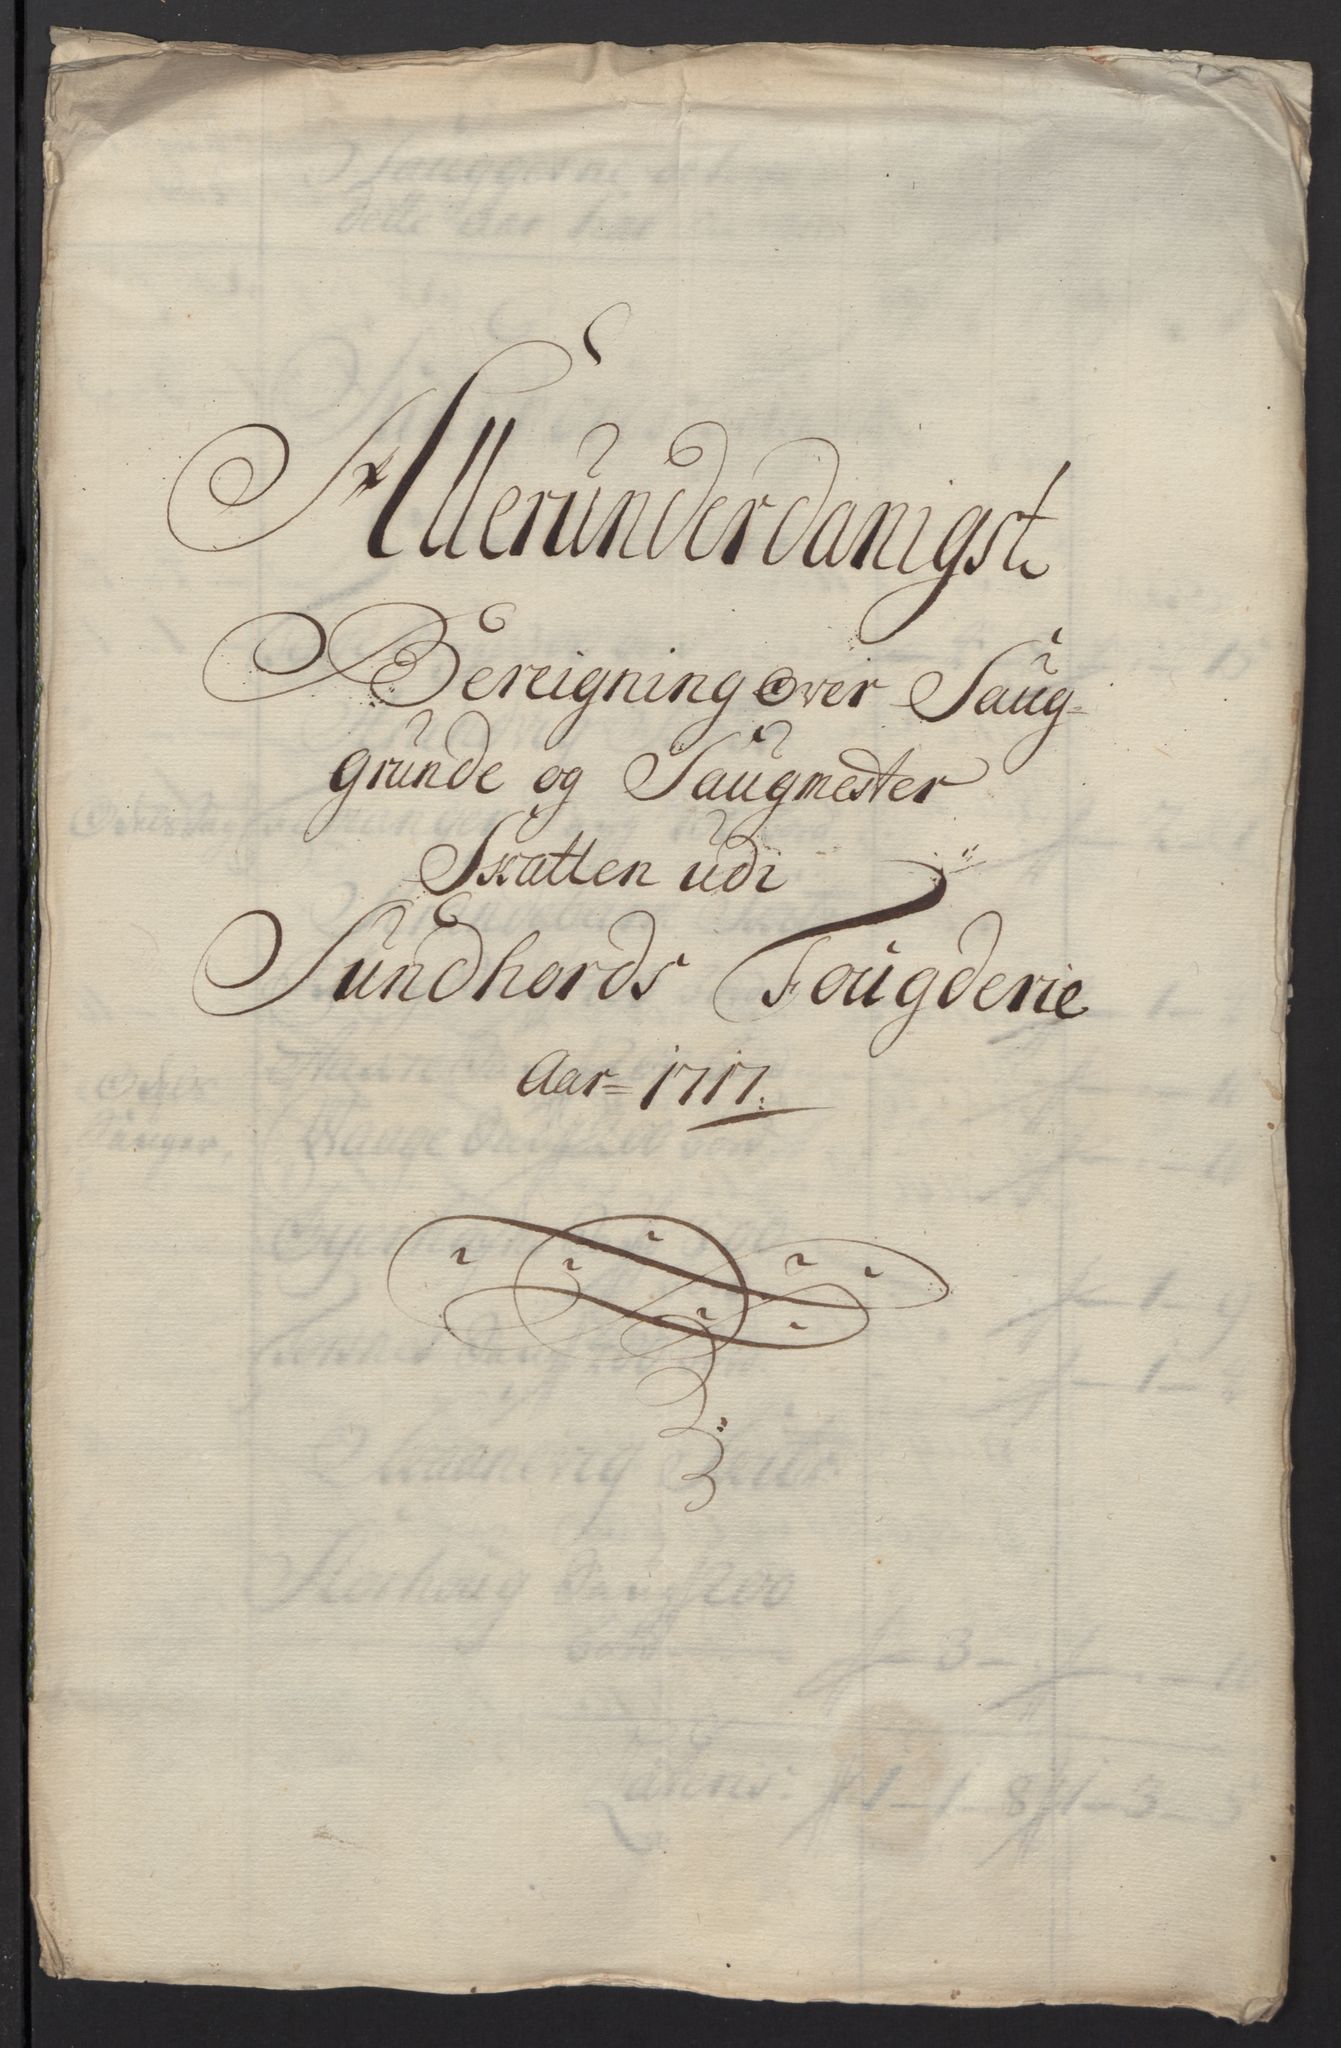 Allerunderdanigst
Bereigning over Saug-
grunde og Saugmester
Skatten udi
Sundhords Fougderie
Aar= 1717.